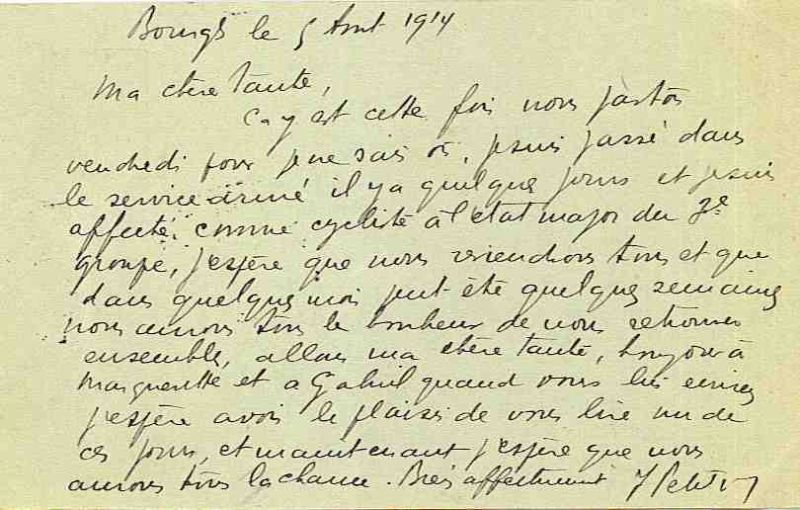 Bourges le 5 Aout 1914
Ma chère Tante,
Ca y est cette fois nous partons
vendredi pour je ne sais où, je suis passé dans
le service armé il y a quelques jours et je suis
affecté comme cycliste à l'état major du 3e
groupe, j'espère que nous reviendrons tous et que
dans quelques mois peut être quelques semaines
nous aurons tous le bonheur de nous retrouver
ensemble, allons ma chère tante, bonjour à
Marguerite et a Gabriel quand vous lui écrirez
j'espère avoir le plaisir de vous lire un de
ces jours, et maintenant j'espère que nous
aurons tous la chance. Bien affectueusement